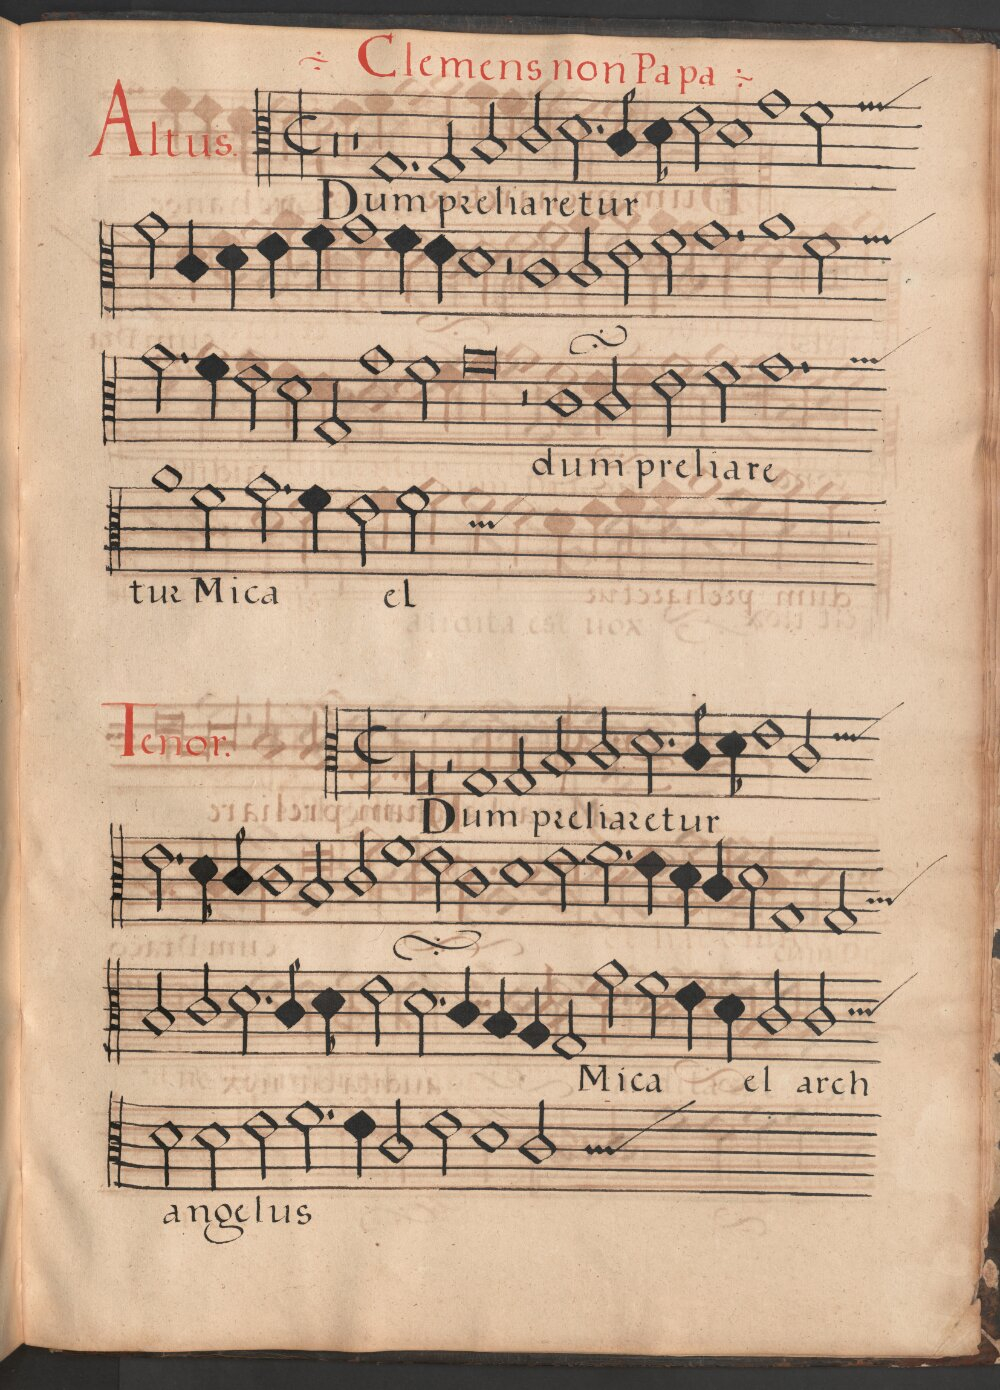 Clemens non Papa
Altus.
Dum preliaretur
dum preliare
tur Mica el
Tenor.
Dum preliaretur
Mica el arch
angelus